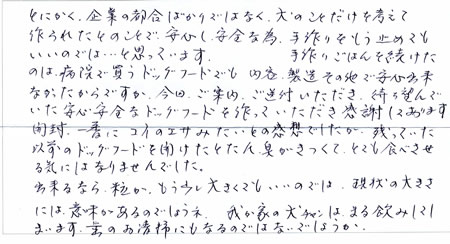 とにかく、企業の都合ばかりではなく、犬のことだけを考えて
作られたとのことで、安心し、安全な為、手作りをもう止めても
いいのでは…と思っています。　手作りごはんを続けた
のは、病院で買うドッグフードでも内容、製造その他で安心出来
なかったからですが、今回、ご案内、ご送付いただき、待ち望んで
いた安心安全なドッグフードを作っていただき感謝しております
開封、一番にコイのエサみたいとの感想でしたが、残っていた
以前のドッグフードを開けたとたん、臭がきつくて、とても食べさせ
る気にはなりませんでした。
出来るなら、粒が、もう少し大きくてもいいのでは、現状の大きさ
には、意味があるのでしょうネ、我が家の犬チャンは、まる飲みして
しまいます。歯のお清掃にもなるのではないでしょうか。